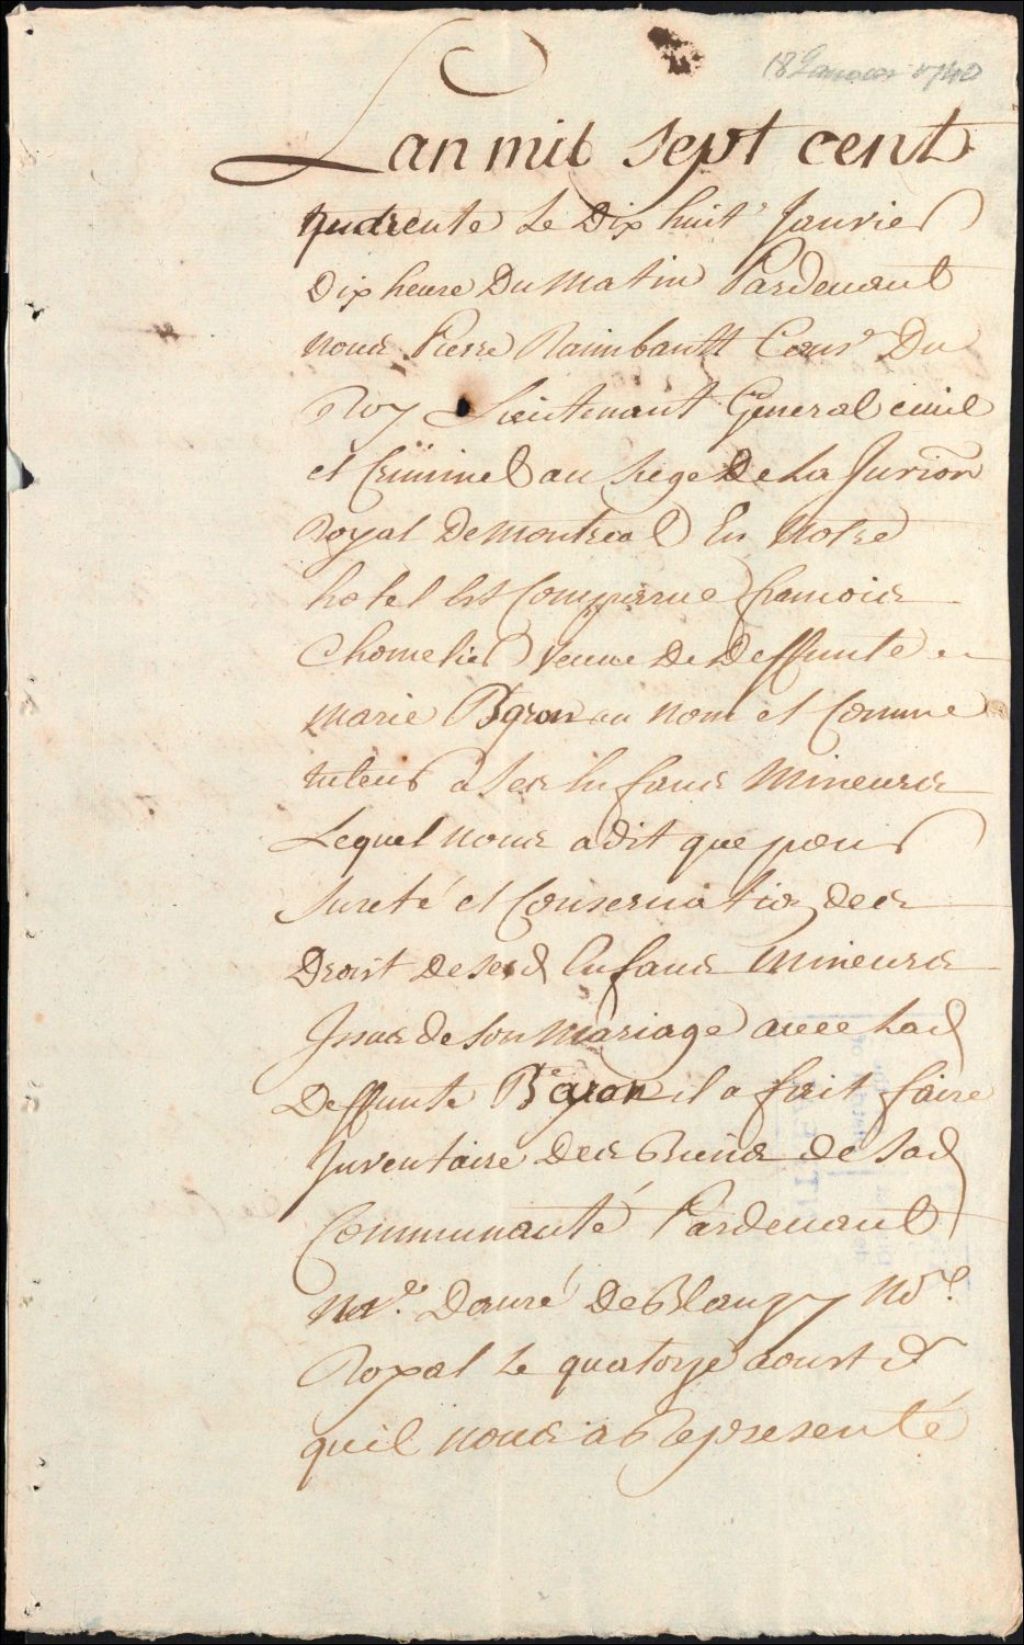 18 Janvier 1740
Lan mil sept cent
quarente Le Dix huit Janvier
Dix heure Du Matin Pardevant
nous Pierre Raimbault Cons.r Du
Roy Lieutenant General civil
et Criminel au siege De La Jurion
Royal De Montreal En Notre
hotel Est Comparue francois
Chomelier veuve De Deffunte
marie Bgron au nom et Comme
tuteur a ses Enfans Mineurs
Lequel nous a dit que pour
sureté et Conservation des
Droit de sesd Enfans Mineurs
Issus de son Mariage avec Lad
Deffunte Bégron il a fait faire
Inventaire des Biens de Sad
Communauté Pardevant
Me. Dauré De Blanzy No.e
Royal Le quatorze aoust d.r
quil nous a Representé